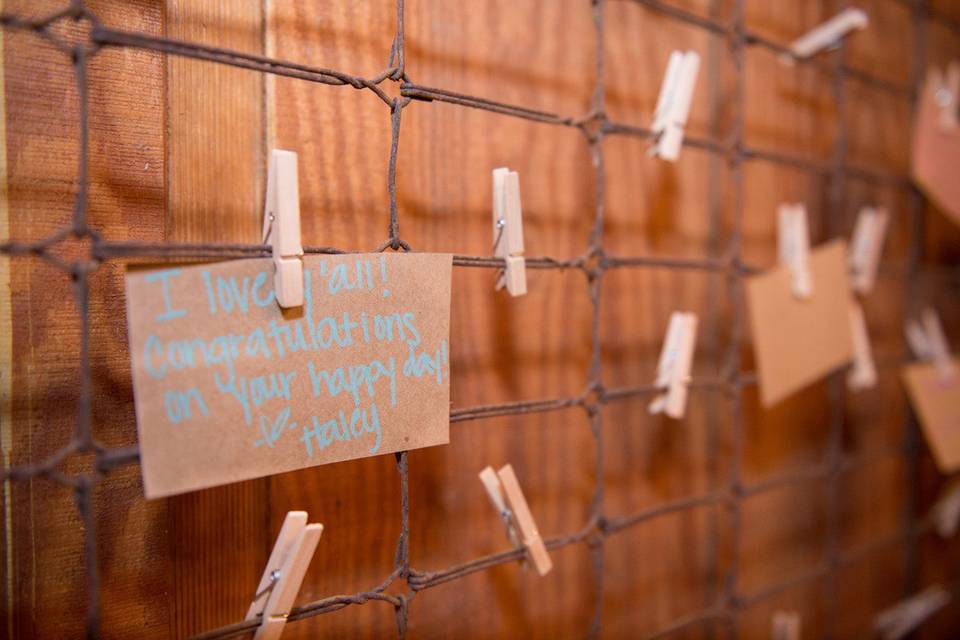 I love y'all!
Congratulations
on your happy day!
-♡ Haley